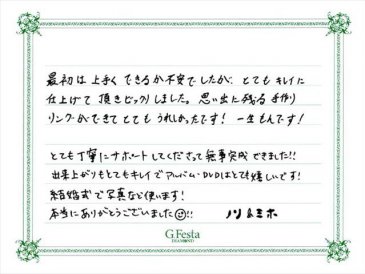 最初は上手くできるか不安でしたが、とてもキレイに
仕上げて頂きビックリしました。思い出に残る手作り
リングができてとてもうれしかったです！一生もんです！
とても丁寧にサポートしてくださって無事完成できました!!
出来上がりもとてもキレイでアルバム・DVDはとても嬉しいです！
結婚式で写真など使います！
本当にありがとうございました!! ノリ&ミホ
G.Festa
DIAMOND